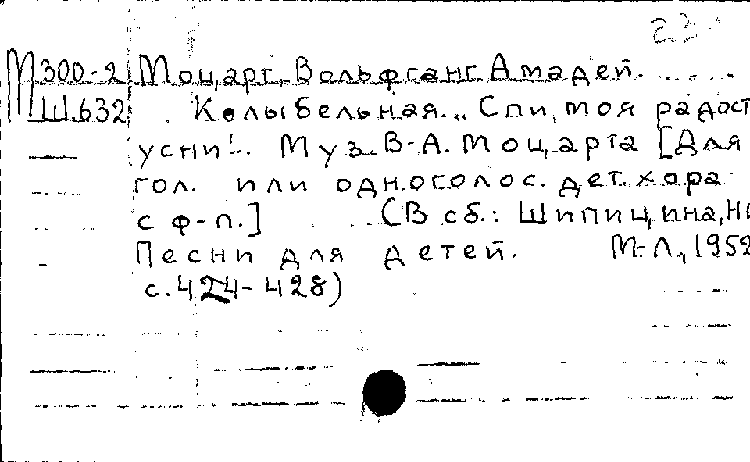 23
М300-2 Моцарт, Вольфганг Амадей.
Ш632 Колыбельная. „Спи, моя радост
усни". Муз. В-А. Моцарта [Для
гол. или одноголос. дет. хора
с ф-п.] (В сб.: Шипицина, Н
Песни для детей. М-Л., 1952
с. 424-428)